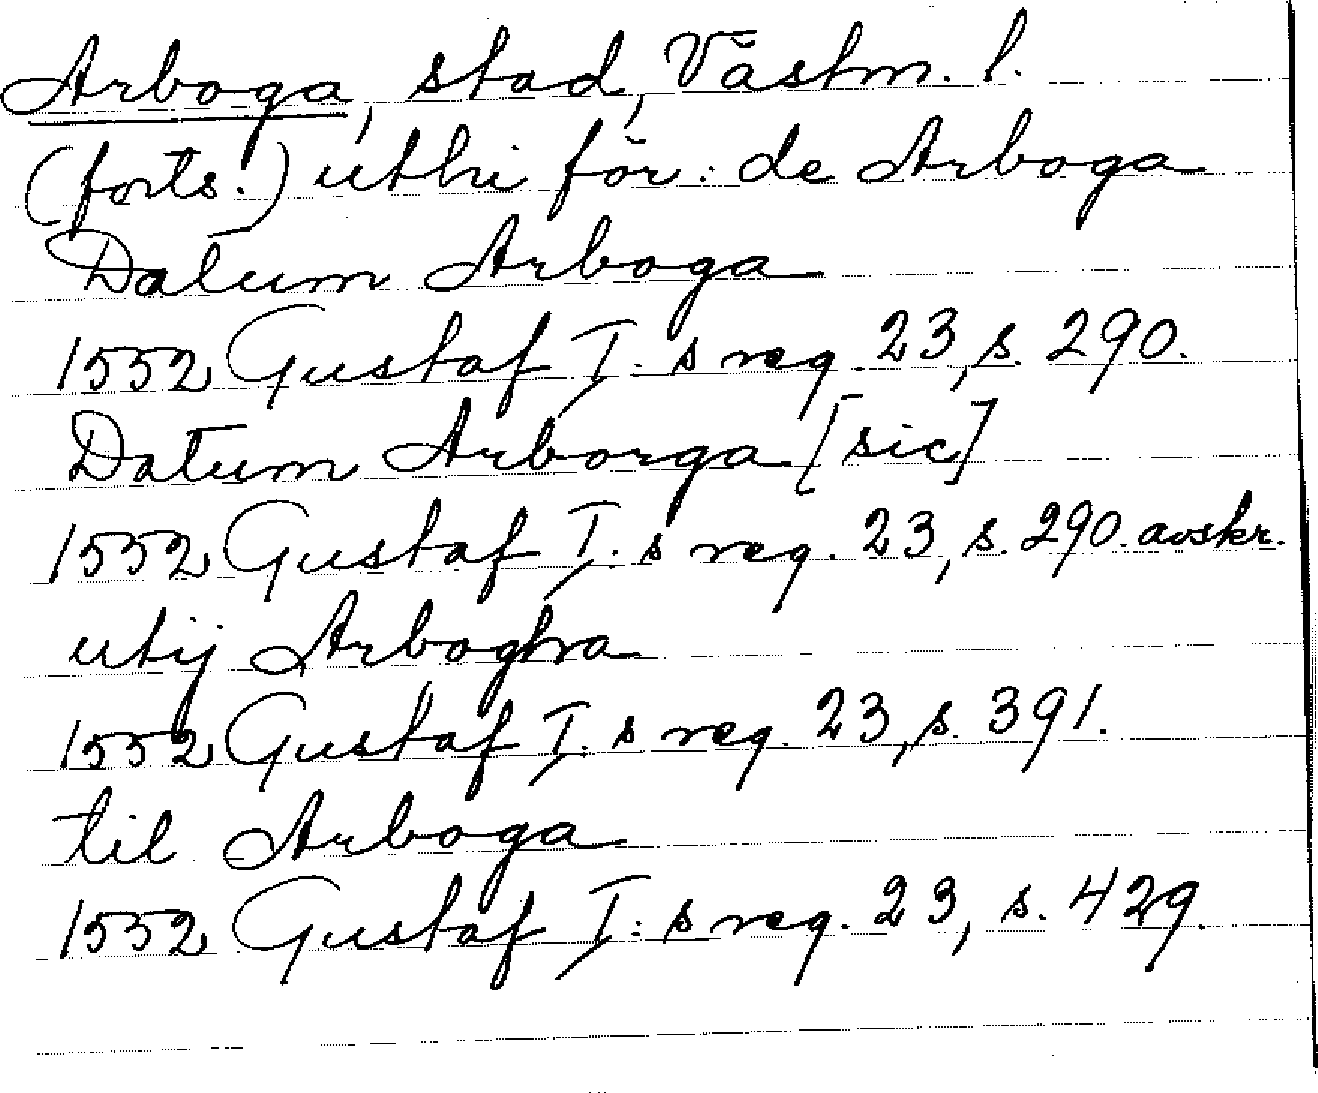 Arboga, stad, Västm. l.
(forts.) uthi för: de Arboga
Datum Arboga
1552 Gustaf I: s reg. 23, s. 290.
Datum Arborga [sic]
1552 Gustaf I: s reg. 23, s. 290. avskr.
utij Arbogha
1552 Gustaf I: s reg. 23, s. 391.
til Arboga
1552 Gustaf I: s reg. 23, s. 429.